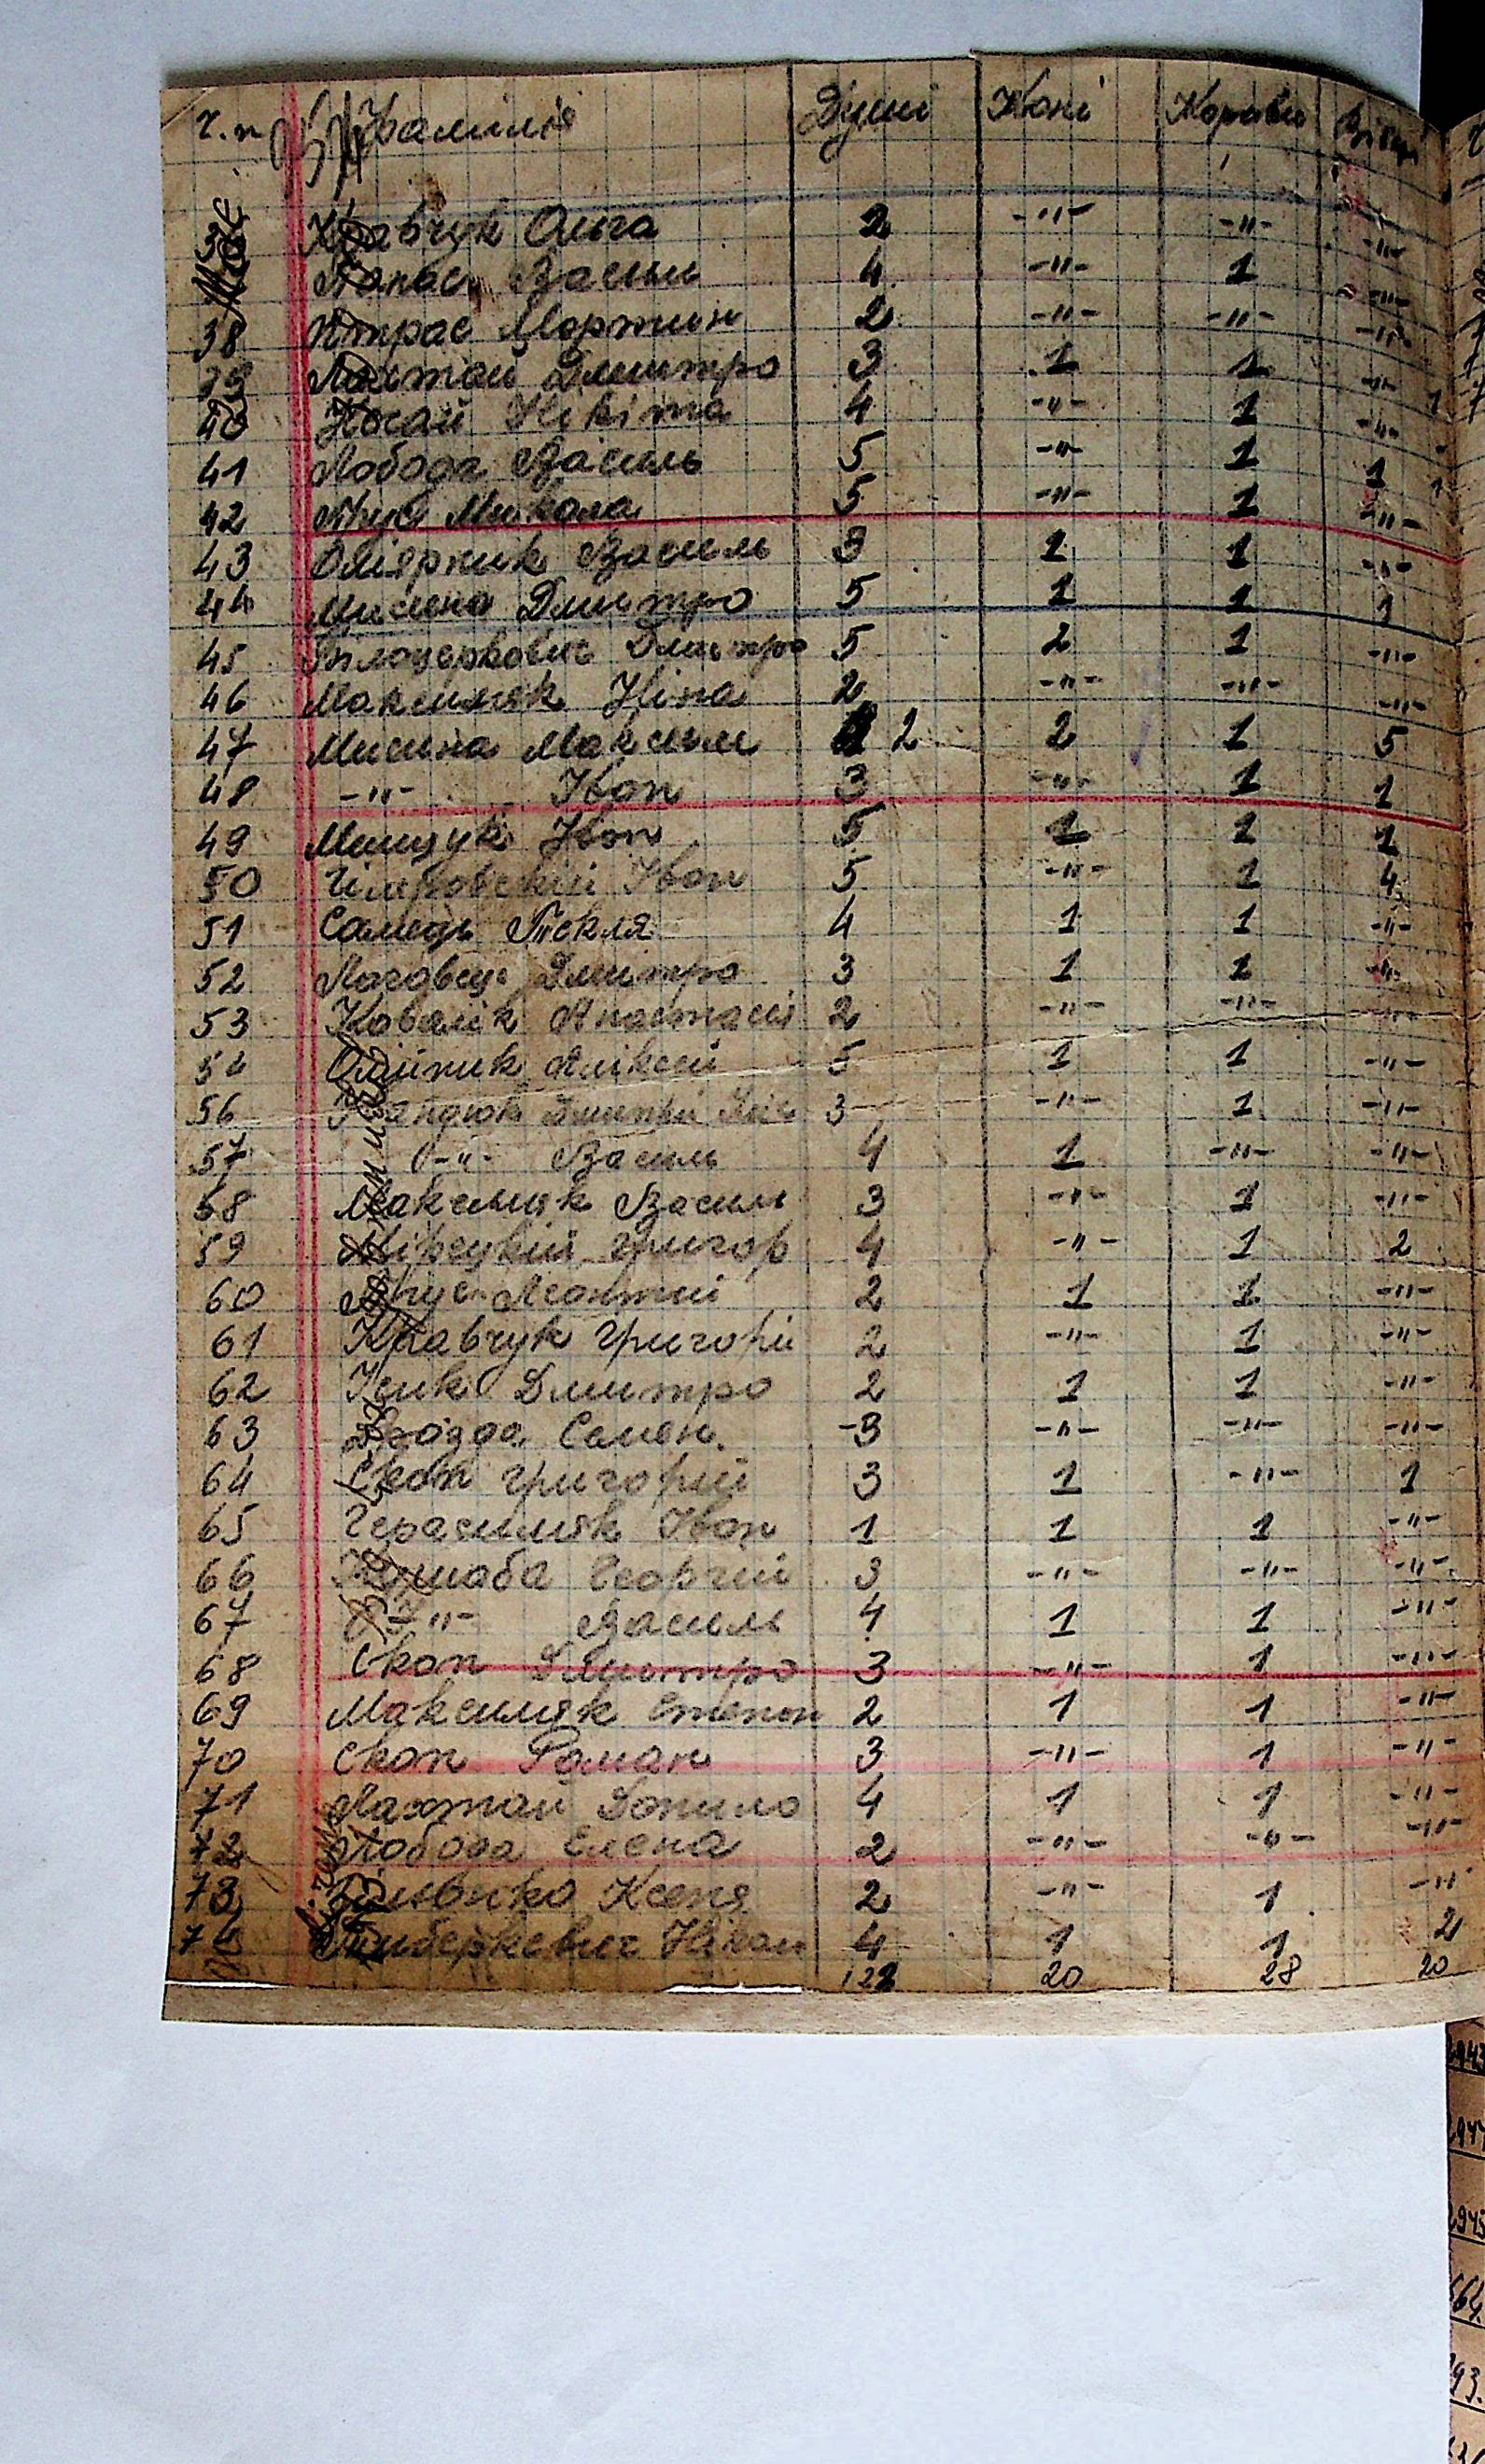 ч.п Фамилія Душі Коні Корови Вівці
Кравчук Ольга 2 -"- -"- -"-
Панас Василь 4 -"- 1 -"-
38 Петрас Мортин 2 -"- -"- -"-
39 Лахтай Дмитро 3 1 1 -"-
40 Носай Нікіта 4 -"- 1 -"-
41 Лобода Василь 5 -"- 1 1
42 Микола 5 -"- 1 -"-
43 Оліярник Василь 3 1 1 -"-
44 Мисена Дмитро 5 1 1 1
45 Білоцерковис Дмитро 5 2 1 -"-
46 Максимяк Ніна 2 -"- -"- -"-
47 Мисина Максим 2 2 1 5
48 -"- Іван 3 -"- 1 1
49 Мищук Іван 5 1 1 1
50 Іван 5 -"- 1 4
51 Самець Текля 4 1 1 -"-
52 Логовец Дмитро 3 1 1 -"-
53 Ковалік Анастасі 2 -"- -"- -"-
54 Олійник Аліксей 5 1 1 -"-
56 3 -"- 1 -"-
57 -"- Василь 4 1 -"- -"-
58 Максимяк Василь 3 -"- 1 -"-
59 Григор 4 -"- 1 2
60 Леонтий 2 1 1 -"-
61 Кравчук Григорій 2 -"- 1 -"-
62 Дмитро 2 1 1 -"-
63 Дрозда Семен. -3 -"- -"- -"-
64 Скоп Григорій 3 1 -"- 1
65 Герасимяк Іван 1 1 1 -"-
66 Кушаба Георгій 3 -"- -"- -"-
67 -"- Василь 4 1 1 -"-
68 Скоп Дмитро 3 -"- 1 -"-
69 Максимяк Степон 2 1 1 -"-
70 Скоп Роман 3 -"- 1 -"-
71 Лахтай Донило 4 1 1 -"-
72 Лобода Елена 2 -"- -"- -"-
73 Ксеня 2 -"- 1 -"-
74 4 1 1 2
122 20 28 20